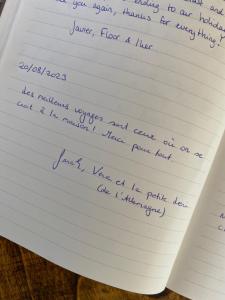 ending to our holiday
you again, thanks for everything!
Javier, Floor & Iker
20/08/2023
Les meilleurs voyages sont ceux où on se
croit à la maison! Merci pour tout.
Sarah, Vera et la petite
(de l'Allemagne)